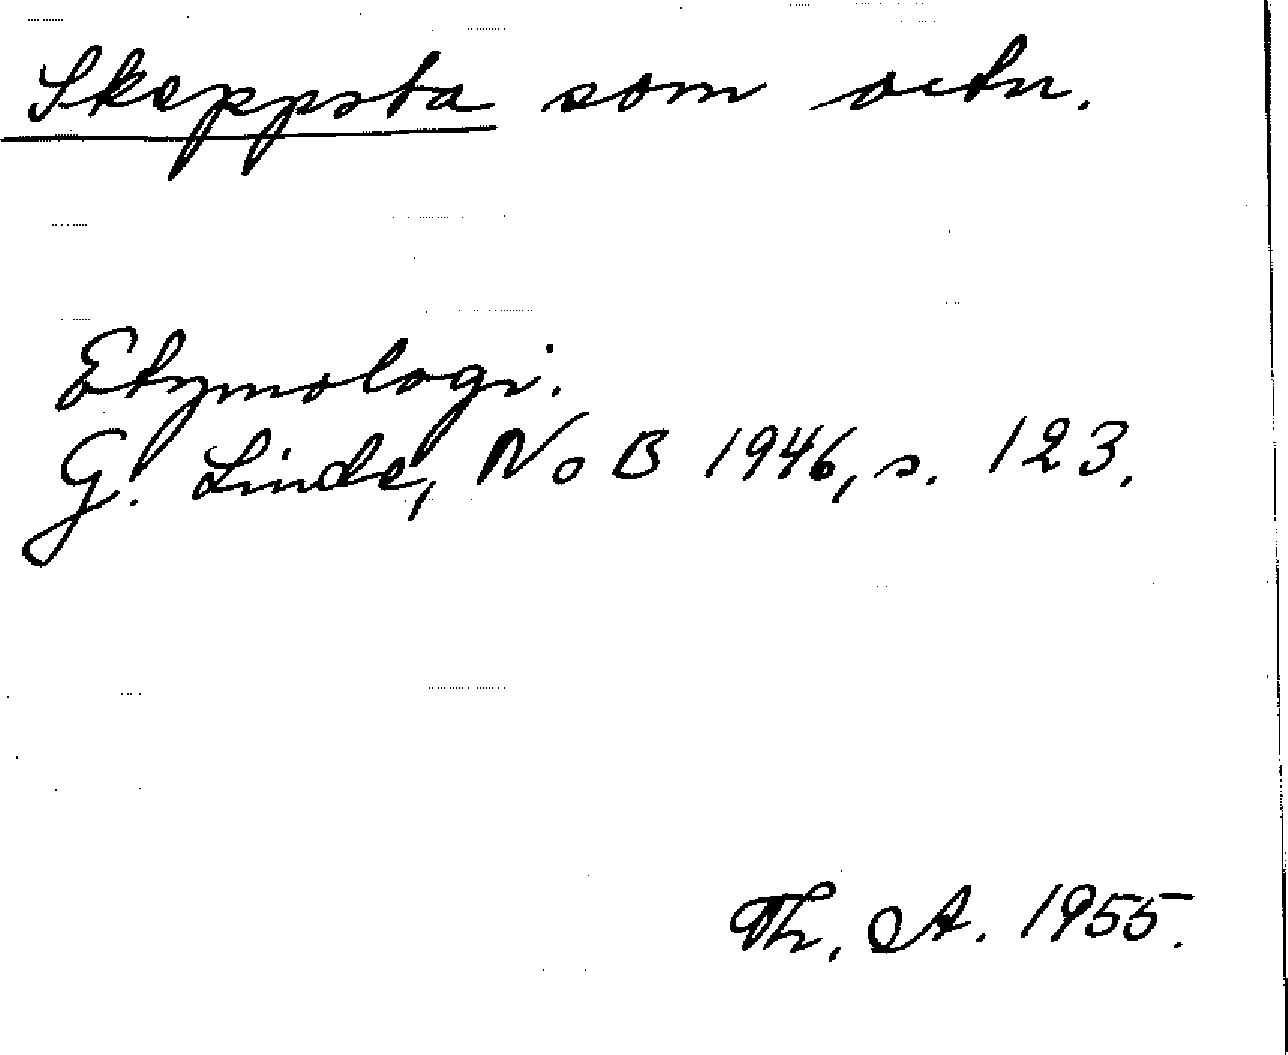 Skeppsta som ortn.
Etymologi.
G. Linde, NoB 1946, s. 123.
Th. A. 1955.